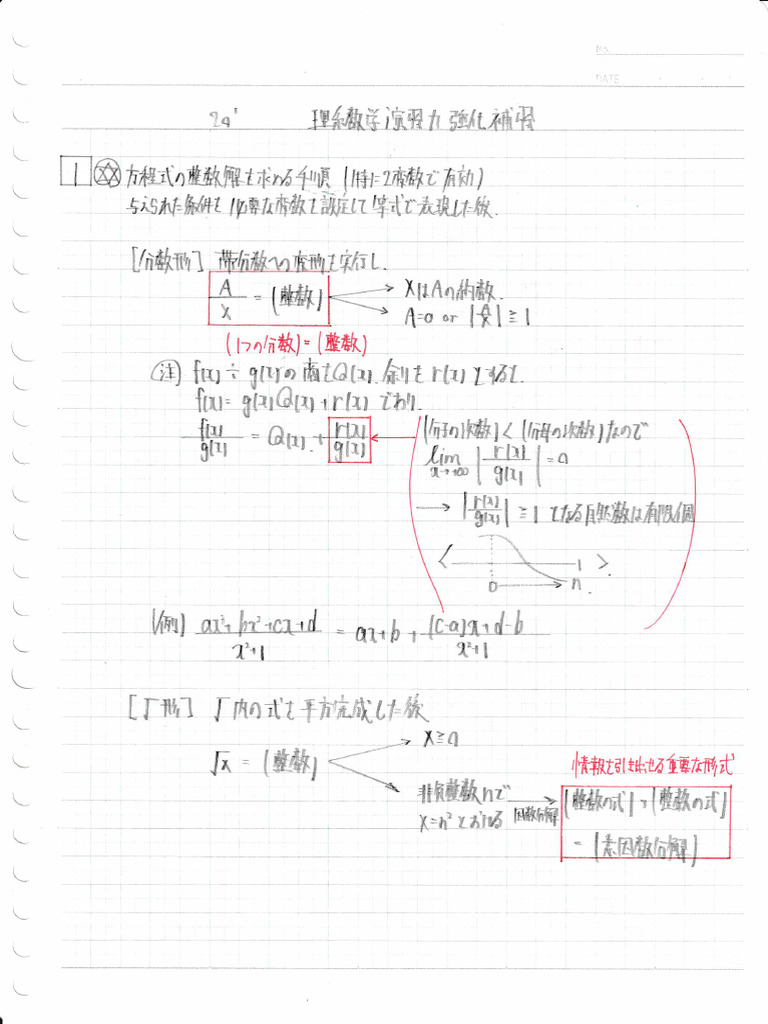 No.
DATE
理系数学演習力強化補習
1 方程式の整数解を求める手順(特に2変数で有効)
与えられた条件を必要な変数を設定して等式で表現した後、
[分数形] 帯分数への変形を実行し、
A/x = (整数)
xはAの約数.
A=0 or |A/x| ≧ 1
(1つの分数)=(整数)
注) f(x)÷g(x)の商をQ(x)、余りをr(x)とすると、
f(x) = g(x)Q(x)+r(x) であり、
f(x)/g(x) = Q(x) + r(x)/g(x)
(分子の次数)<(分母の次数)なので
lim x→+∞ |r(x)/g(x)| = 0
→ |r(x)/g(x)| ≧ 1 となる自然数は有限個
1
0 n.
(例) ax³+bx²+cx+d/x²+1 = ax+b + (c-a)x+d-b/x²+1
[√形] √内の式を平方完成した後
√x = (整数)
x≧0
非負整数nで
x=n²とおける
因数分解
情報を引き出せる重要な形式
(整数の式)×(整数の式)
= (素因数分解)